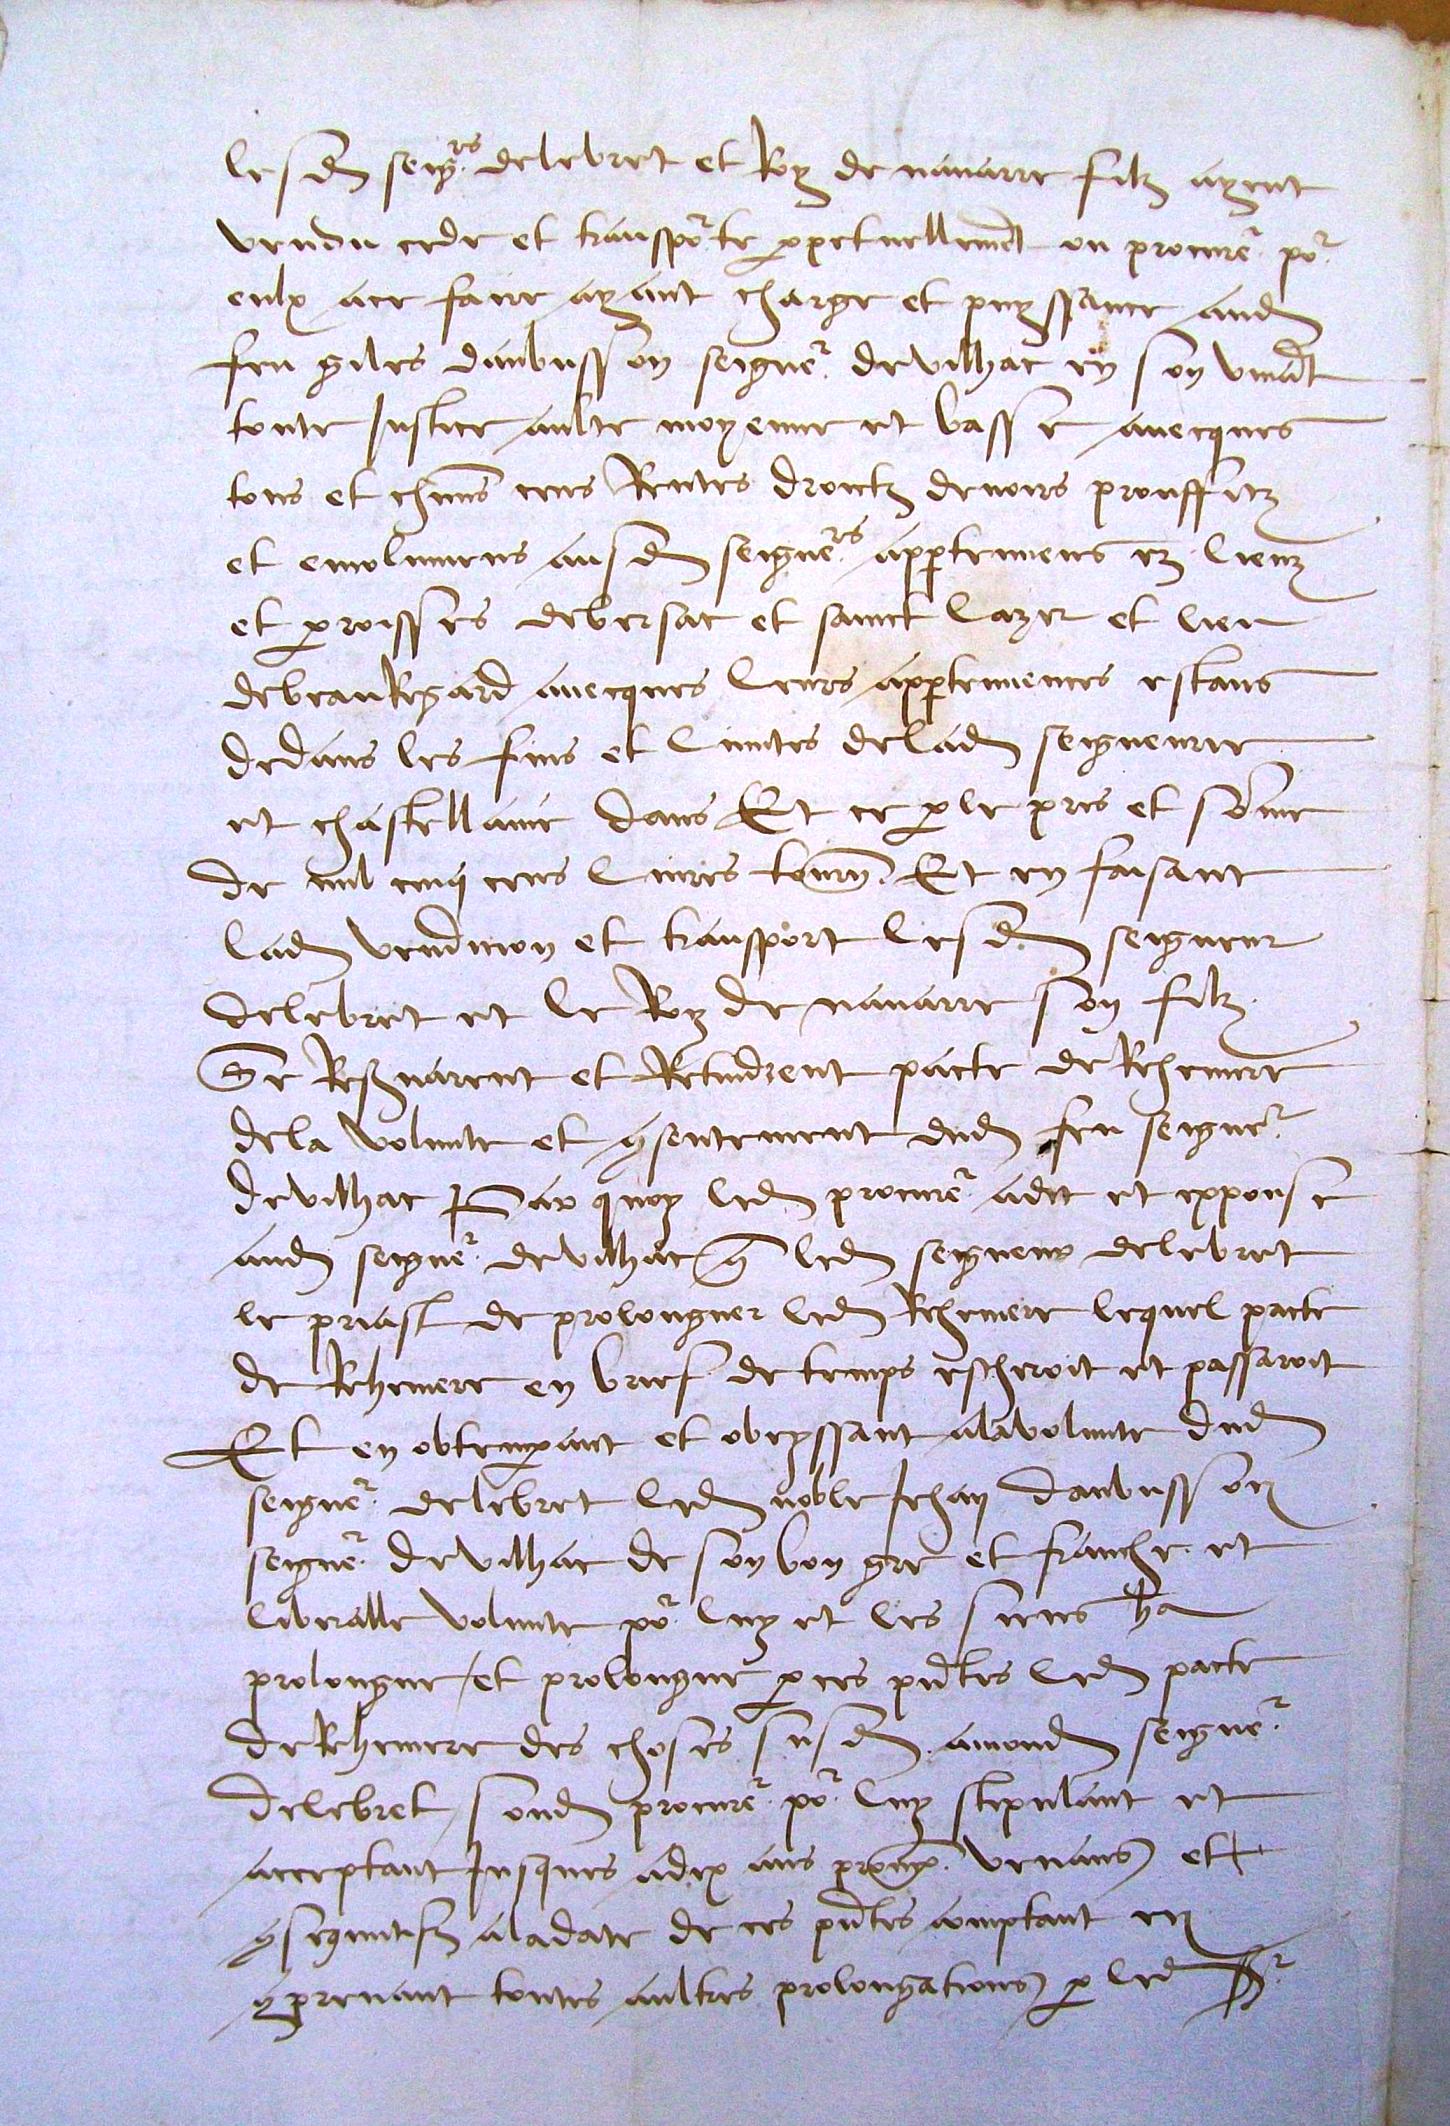 lesd seigrs delebret et Roy de navarre filz ayent
vendu cede et transporte ppetuellemt ou procure por
eulx ace faire ayant charge et puyssance aud
feu giles daubusson seigner devilhac en son vivat
toute Justice aulte moyenne et basse avecques
tous et chuns cens Rentes droictz devoirs prouffitz
et emolumens ausd seigners appartenens ez lieux
et proisses debersac et sainct lazer et lieu
debeauRegard avecques leurs appartenences estans
dedans les fins et limites delad seigneurie
et chastellanie dans Et ce p le pris et some
de mil cinq cens livres tourn Et en faisant
lad vendition et transport lesd seigneur
delebret et le Roy de navarre son filz
Se Reservarent et Retindrent pacte de Rehemere
dela volunte et gsentement dud feu seigner
devilhac Par quoy led procurer adit et expouse
aud seigner devilhac q led seigneur delebret
le priast de prolonguer led Rehemere lequel pacte
de Rehemere en brief de temps escheroit et passaroit
Et en obtempant et obeyssant alavolunte dud
seigner delebret led noble Jehan daubusson
seigner devilhac de son bon gre et franche et
liberalle volunte por luy et les siens ha
prolongue et prolongue p ces pntes led pacte
deRehemere des choses susd amond seigner
delebret sond procurer por luy stipulant et
acceptant Jusques adix ans proux venans et
gsequutifz aladate de ces pntes comptant en
gprenant toutes aultres prolongations p led Sr